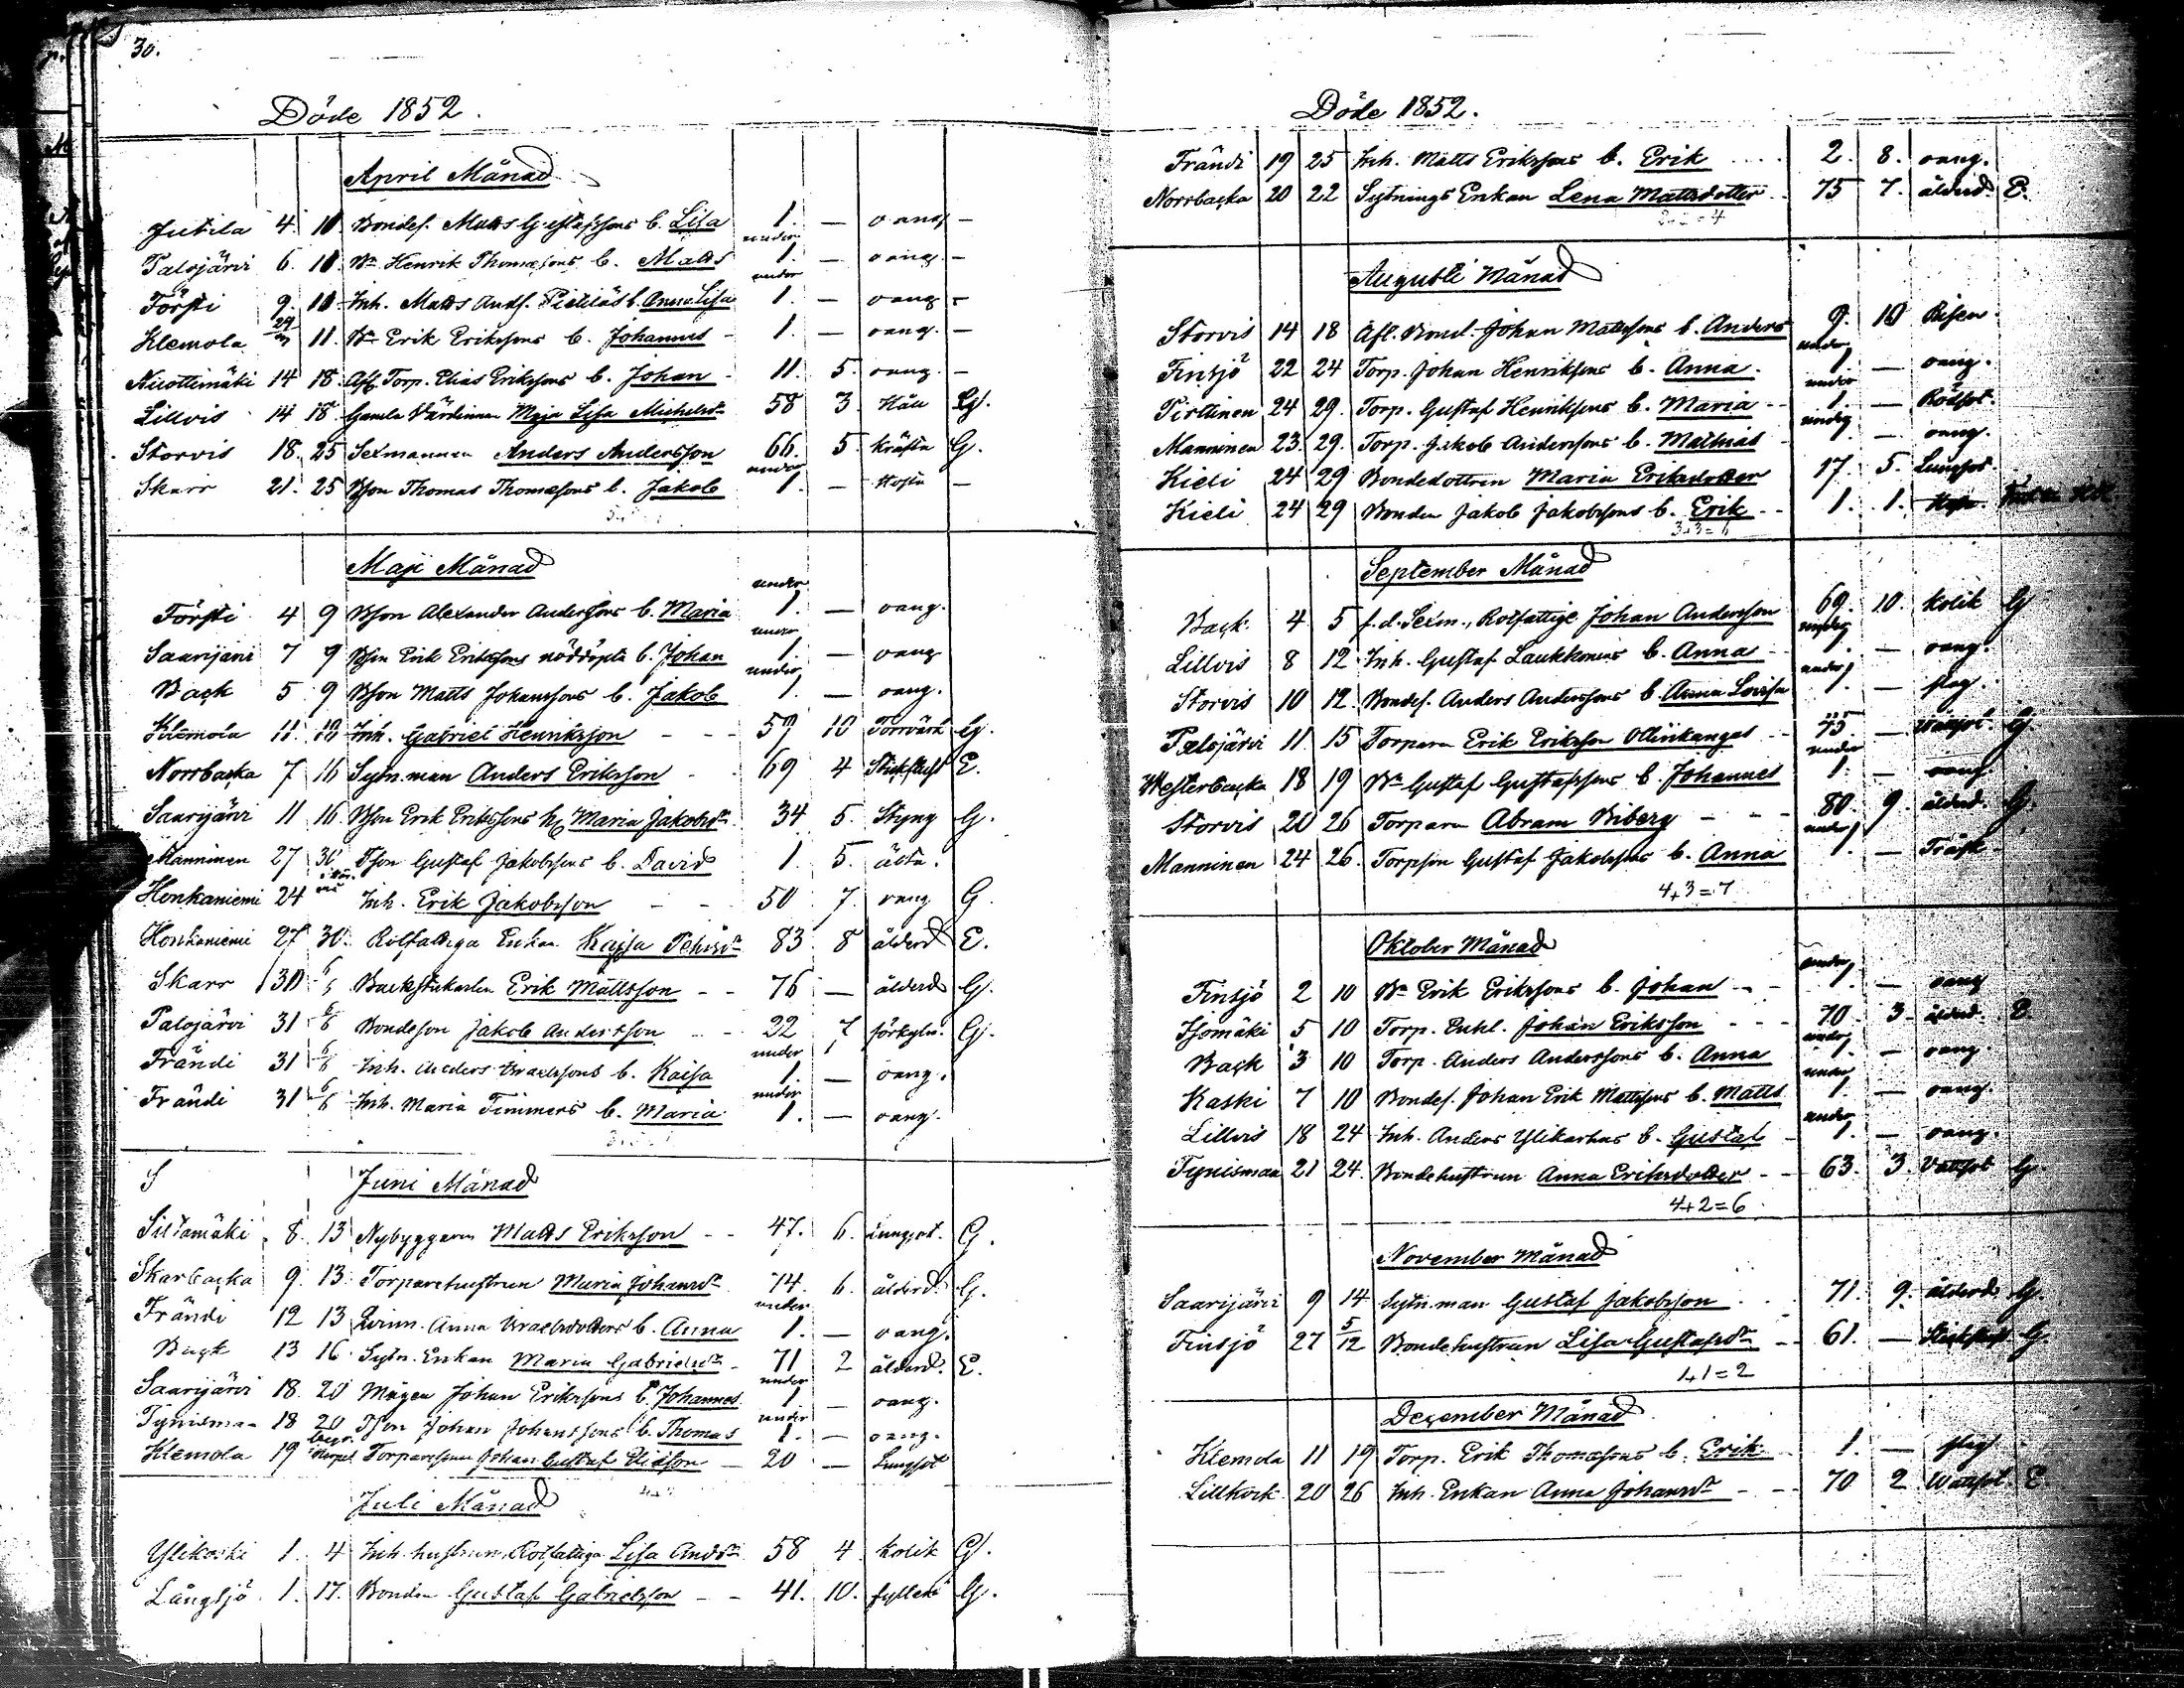 30.
Döde 1852.
April Månad
Jutila 4. 10. Bondes. Matts Gustafssons b. Lisa 1. — oang —
Palojärvi 6. 10. Bn Henrik Thomæsons b. Matts under 1. — oang. —
Försti 9. 10. Inh. Matts Ands. b. Anna Lisa under 1. — oang —
Klemola 11. Bn Erik Erikssons b. Johannes - 1. — oang. —
Niottimäki 14 18. Afl. Torp. Elias Erikssons b. Johan - 11. 5. oang. —
Lillvis 14 18. Gamla Värdinnan Maja Lisa Michelsdr 58 3. Håll G.
Storvis 18. 25 Sexmannen Anders Andersson 66. 5. kräfta G.
Skarr 21. 25 Bson Thomas Thomæsons b. Jakob under 1. — Hosta —
Maji Månad
Försti 4 9 Bson Alexander Anderssons b. Maria under 1. — oang.
Saarijärvi 7 9 Bson Erik Erikssons nöddöpta b. Johan under 1. — oang
Back 5 9 Bson Matts Johanssons b. Jakob under 1. — oang.
Klemola 11. 18 Inh. Gabriel Henriksson - - - 59 10 Torrvärk G.
Norrbacka 7 16 Sytn. man Anders Eriksson - 69 4 Stickfluss E.
Saarijärvi 11 16 Bson Erik Erikssons h. Maria Jakobsdr 34 5. Styng G.
Manninen 27 30 Tson Gustaf Jakobssons b. David 1. 5. älta.
Honkaniemi 24 Inh. Erik Jakobsson - - 50 7. oang G.
Honkaniemi 27 30. Rotfattiga Enkan Kajsa 83. 8 ålderd E.
Skarr 30 6/6 Backstukarlen Erik Mattsson - - 76 — ålderd G.
Palojärvi 31 6/6 Bondeson Jakob Andersson - - 22 7 förkyln. G.
Frändi 31 6/6 Inh. Anders Israelssons b. Kaisa under 1. — oang.
Frändi 31 6/6 Inh. Maria Timmers b. Maria under 1. — oang.
S Juni Månad
Siltamäki 8. 13 Nybyggaren Matts Eriksson - - 47. 6. Lungsot. G.
Skarbacka 9. 13. Torparehustrun Maria Johansdr 74. 6. ålderd. G.
Frändi 12 13 Qvinn. Anna Israelsdotters b. Anna under 1. — oang.
Back 13 16. Sytn. Enkan Maria Gabrielsdr - 71 2 ålderd. E.
Saarijärvi 18. 20 Mågen Johan Erikssons b. Johannes under 1 — oang.
Tynismaa 18 20 Tson Johan Johanssons b. Thomas under 1. — oang.
Klemola 19 Torparesonen Johan Gustaf Eliasson - 20 — Lungsot
Juli Månad
Ylikoski 1. 4 Inh. hustrun, Rotfattiga Lisa Andsdr 58 4 kolik G.
Långsjö 1. 17. Bonden Gustaf Gabrielsson - - 41. 10. G.
Döde 1852.
Frändi 19 25 Inh. Matts Erikssons b. Erik 2. 8. oang.
Norrbacka 20 22 Sytnings Enkan Lena Mattsdotter 75 7. ålderd. E.
Augusti Månad
Storvis 14 18 Afl. Bond. Johan Mattssons b. Anders 9. 10 Risen.
Finsjö 22 24 Torp. Johan Henrikssons b. Anna. under 1. — oang.
Pirttinen 24 29. Torp. Gustaf Henrikssons b. Maria under 1. — Rödsot.
Manninen 23. 29. Torp. Jakob Anderssons b. Mathias under 1. — oang.
Kieli 24 29 Bondedottren Maria Eriksdotter 17. 5. Lungsot.
Kieli 24 29 Bonden Jakob Jakobssons b. Erik - - 1. 1.
3+3=6
September Månad
Back 4 5 f. d. Sexm., Rotfattige Johan Andersson 69. 10. kolik G
Lillvis 8 12 Inh. Gustaf Laukkonens b. Anna under 1. — oang.
Storvis 10 12. Bondes. Anders Anderssons b. Anna Lovisa under 1. — slag.
Palojärvi 11. 15 Torparen Erik Eriksson Ollinkangas 45. — G.
Westerbacka 18 19 Bn Gustaf Gustafssons b. Johannes under 1. — oang.
Storvis 20 26 Torparen Abram Wiberg - - - 80. 9. ålderd. G.
Manninen 24 26. Torpson Gustaf Jakobssons b. Anna under 1. — Tråsk
4+3=7
Oktober Månad
Finsjö 2 10 Bn Erik Erikssons b. Johan - - under 1. — oang
Isomäki 5 10 Torp. Enkl. Johan Eriksson - - - 70. 3. ålderd. E.
Back 3 10 Torp. Anders Anderssons b. Anna under 1. — oang.
Kaski 7 10 Bondes. Johan Erik Mattssons b. Matts under 1. — oang.
Lillvis 18 24 Inh. Anders Ylikarhus b. Gustaf under 1. — oang.
Tynismaa 21 24. Bondehustrun Anna Eriksdotter - - 63. 3. Vattsot G.
4+2=6
November Månad
Saarijärvi 9 14 Sytn. man Gustaf Jakobsson 71. 9. ålderd G.
Finsjö 27 5/12 Bondehustrun Lisa Gustafsdr - - 61. — Stickfluss G
1+1=2
December Månad
Klemola 11 19 Torp. Erik Thomæsons b. Erik 1. — slag
Lillkork 20 26 Inh. Enkan Anna Johansdr - - 70 2 Wattsot. E.